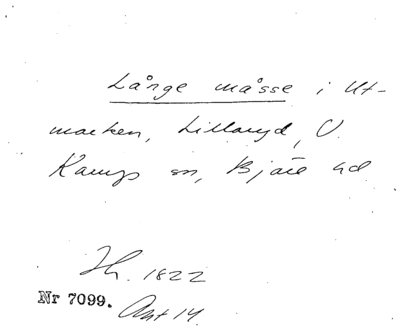 Långe måsse i Ut-
marken, Lillaryd, V.
Karups sn, Bjäre hd
Jh. 1822
Nr 7099. Akt 14